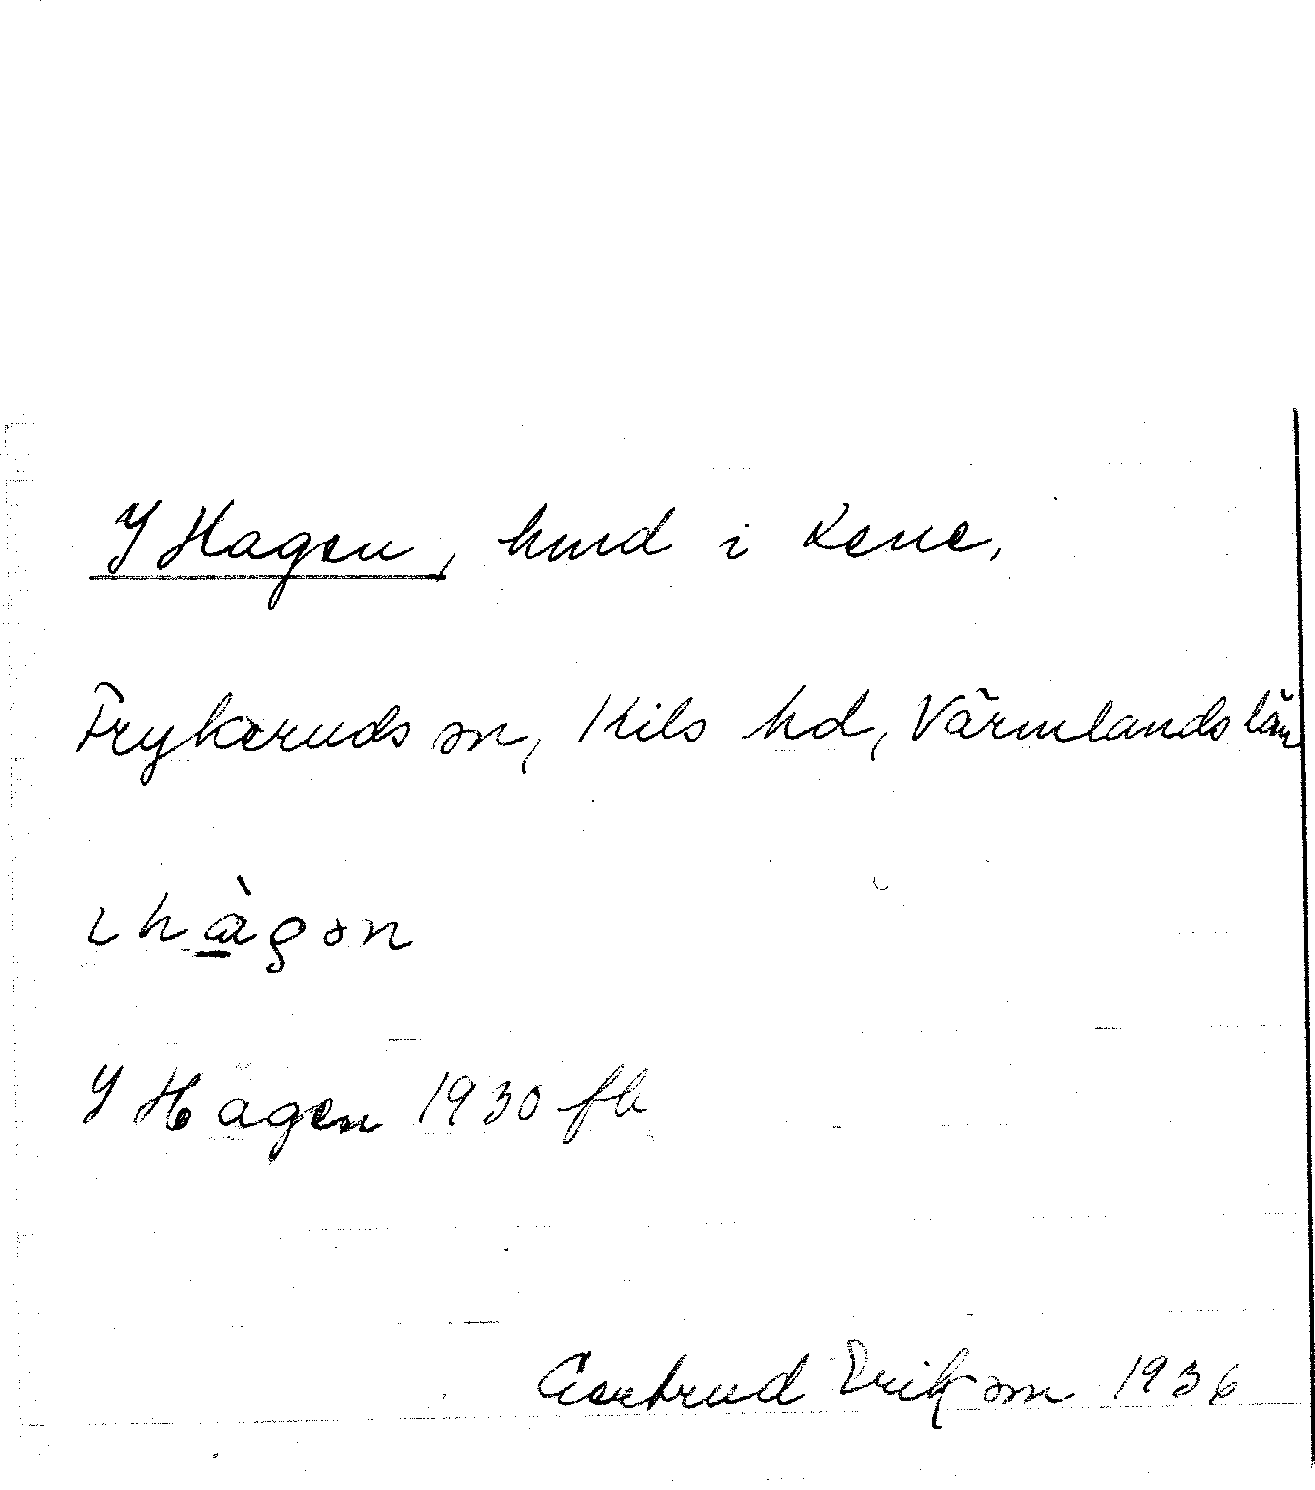 I Hagen, hmd i Lene,
Frykeruds sn, Kils hd, Värmlands län
ı hàgən
I Hagen 1930 fb
Gertrud Erikson 1936